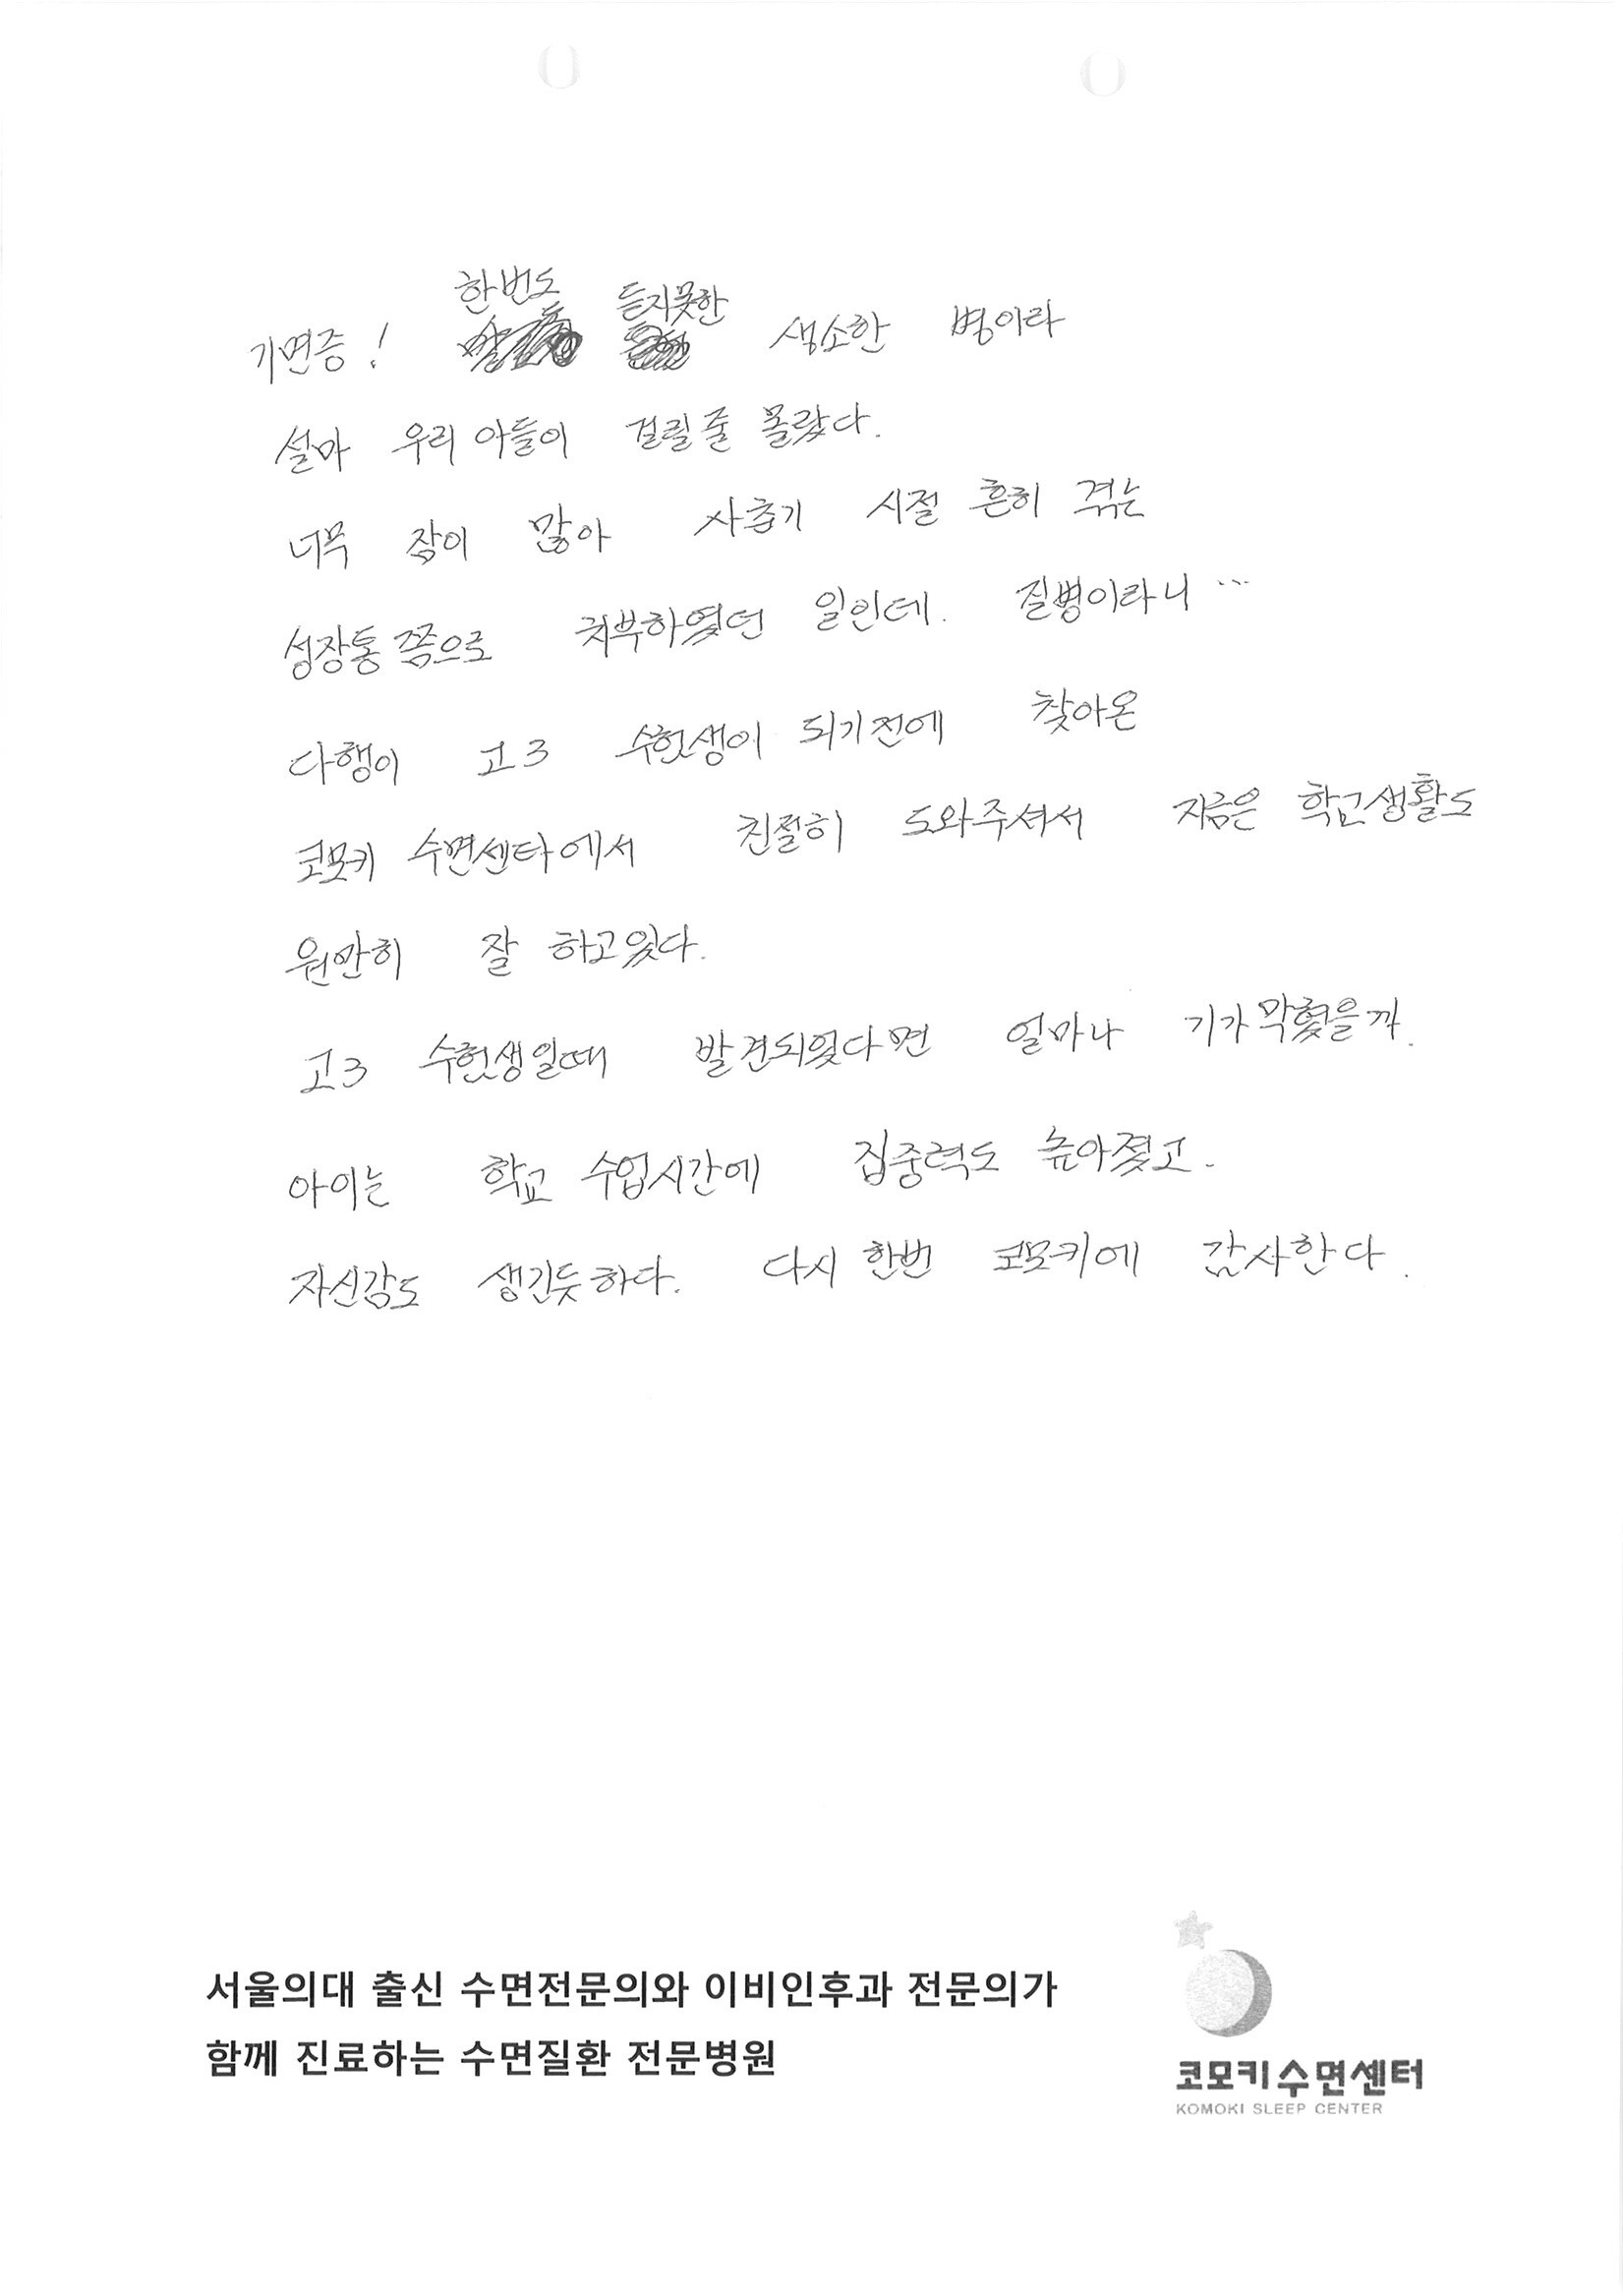 기면증! 한번도 듣지못한 생소한 병이라
설마 우리 아들이 걸릴줄 몰랐다.
너무 잠이 많아 사춘기 시절 흔히 겪는
성장통쯤으로 치부하였던 일인데. 질병이라니...
다행이 고3 수험생이 되기전에 찾아온
코모키 수면센타에서 친절히 도와주셔서 지금은 학교생활도
원만히 잘 하고있다.
고3 수험생일때 발견되었다면 얼마나 기가막혔을까.
아이는 학교 수업시간에 집중력도 높아졌고.
자신감도 생긴듯하다. 다시 한번 코모키에 감사한다.
서울의대 출신 수면전문의와 이비인후과 전문의가
함께 진료하는 수면질환 전문병원
코모키수면센터
KOMOKI SLEEP CENTER